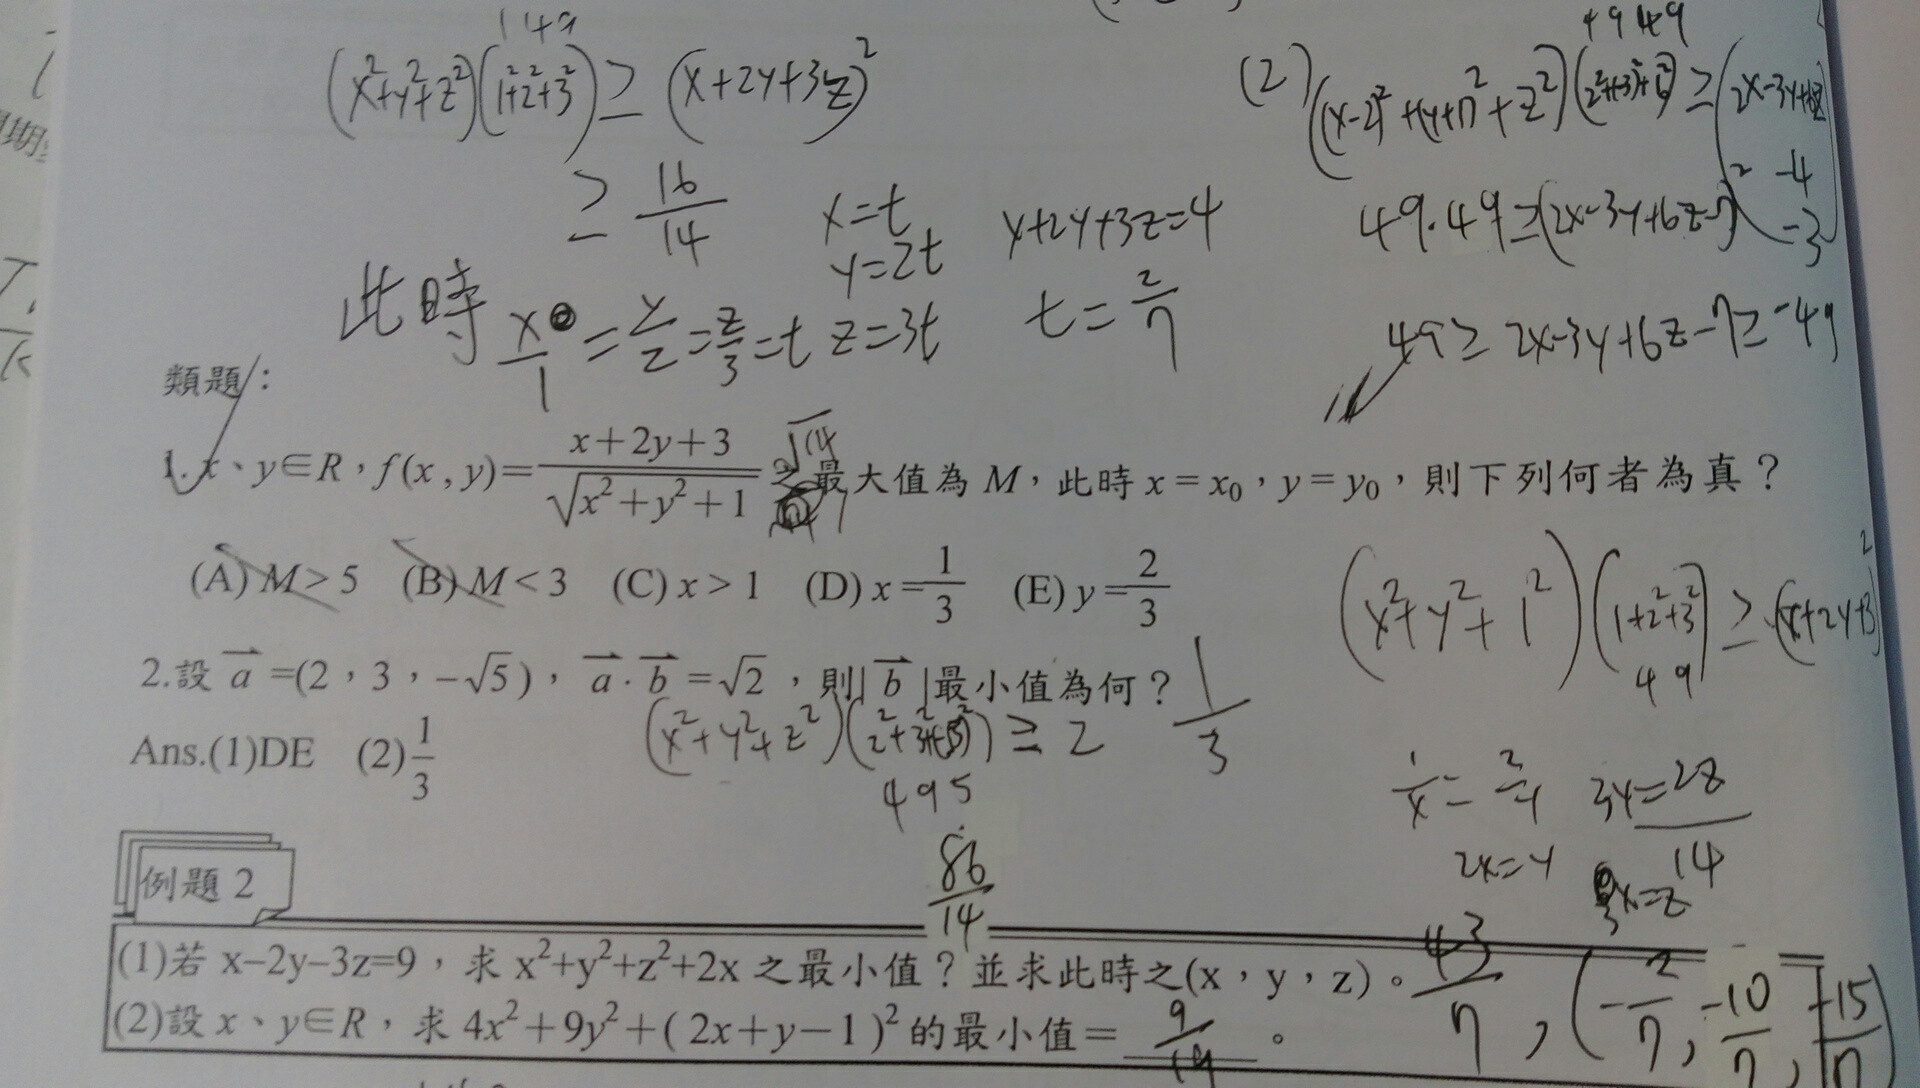 1 4 9
(x²+y²+z²)(1²+2²+3²)≥(x+2y+3z)²
≥ 16/14
x=t
y=2t
z=3t
x+2y+3z=4
t=2/7
此時 x/1=y/2=z/3=t
4 9 49
(2) ((x-2)²+(y+1)²+z²)(2²+(-3)²+6²)≥(2x-3y+6z
-4
-3)²
49·49≥(2x-3y+6z-7)²
49≥2x-3y+6z-7≥-49
類題:
1.x、y∈R,f(x,y)=(x+2y+3)/√(x²+y²+1) 之最大值為 M,此時 x=x₀,y=y₀,則下列何者為真?
√14
(A) M>5 (B) M<3 (C) x>1 (D) x=1/3 (E) y=2/3
(x²+y²+1²)(1+2²+3²)≥(x+2y+3)²
4 9
2.設 a⃗=(2,3,-√5),a⃗·b⃗=√2,則|b⃗|最小值為何? 1/3
(x²+y²+z²)(2²+3²+(-√5)²)≥2
4 9 5
Ans.(1)DE (2)1/3
1/x=2/y 3y=2z
2x=y 3x=z
14
86/14
例題 2
(1)若 x-2y-3z=9,求 x²+y²+z²+2x 之最小值?並求此時之(x,y,z)。 43/7,(-2/7,-10/7,-15/7)
(2)設 x、y∈R,求 4x²+9y²+(2x+y-1)²的最小值= 9/19 。